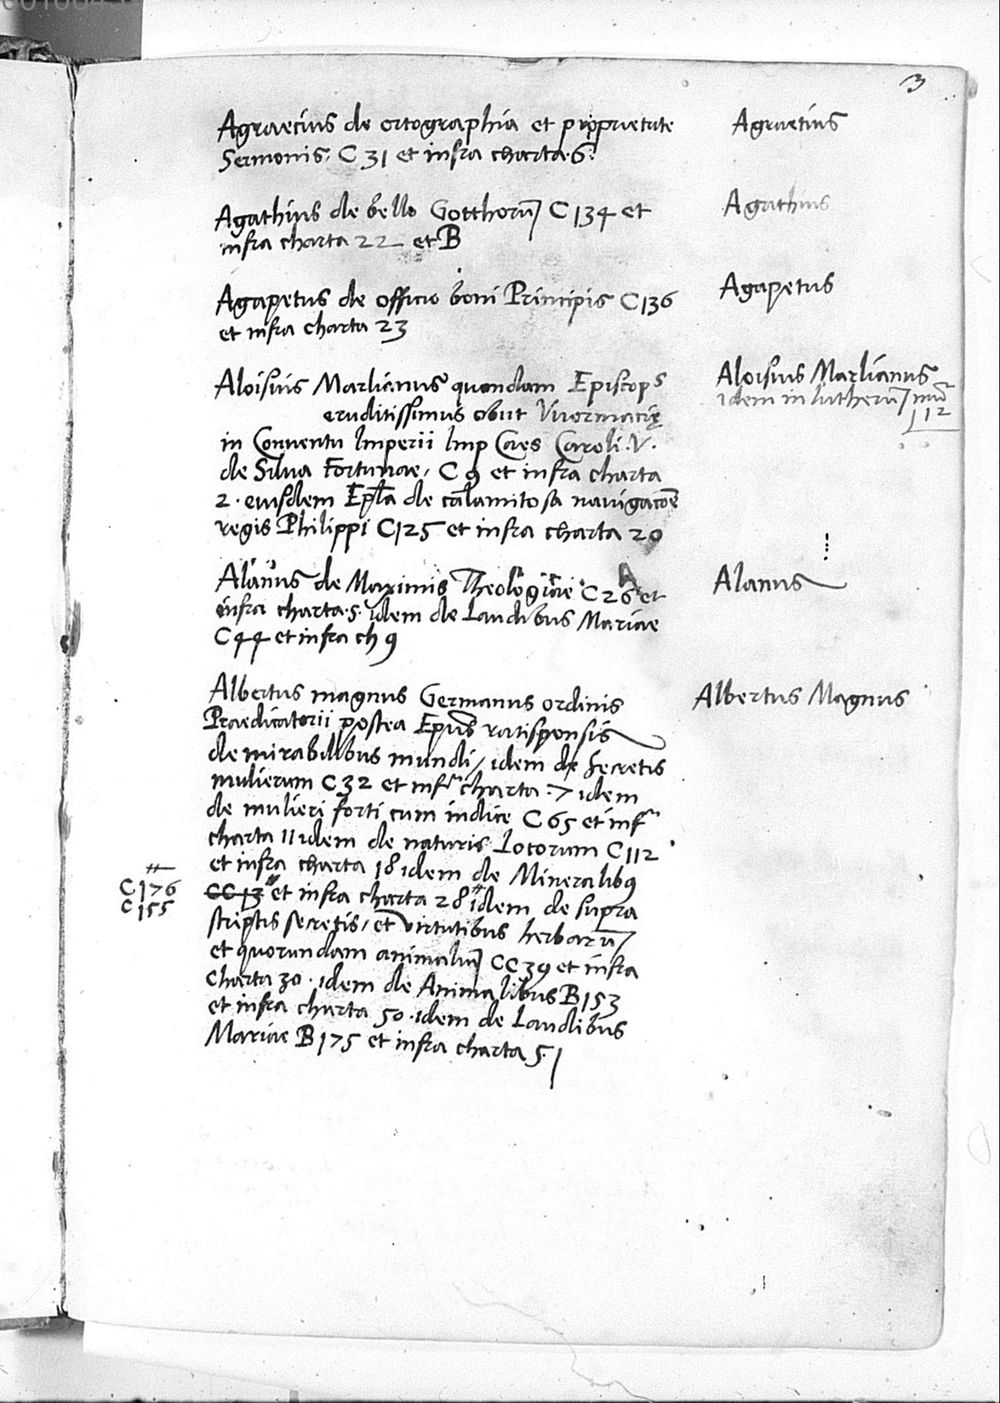 3
Agraecius de ortographia et proprietate
Sermonis. C 31 et infra charta. 6.
Agraetius
Agathius de bello Gotthorũ C 134 et
infra charta 22 et B
Agathius
Agapetus de officio boni Principis C 136
et infra charta 23
Agapetus
Aloisius Marlianus quondam Episcops
eruditissimus obiit Vuormacię
in Conventu Imperii Imp Caes Caroli. V.
de Silva Fortunae, C 9 et infra charta
2. eiusdem Epla de calamitosa navigacõe
regis Philippi C 125 et infra charta 20
Aloisius Marlianus
idem in lutherũ
112
Alanus de Maximis Theologiae C 26 et
infra charta. 5. idem de Laudibus Mariae
C 44 et infra ch 9
A
Alanus
Albertus magnus Germanus ordinis
Praedicatorii postea Epũs ratisponsis
de mirabilibus mundi, idem de Secretis
mulierum C 32 et infr charta. 7 idem
de mulieri forti cum indice C 65 et infr
charta 11 idem de naturis Locorum C 112
et infra charta 18 idem de Mineralibq
CC 13 et infra charta 28 idem de supra
scriptis secretis, et virtutibus herbarũ
et quorundam animaliũ CC 39 et infra
charta 30. idem de Animalibus B 153
et infra charta 50. idem de Laudibus
Mariae B 175 et infra charta 51
Albertus Magnus
C 176
C 155